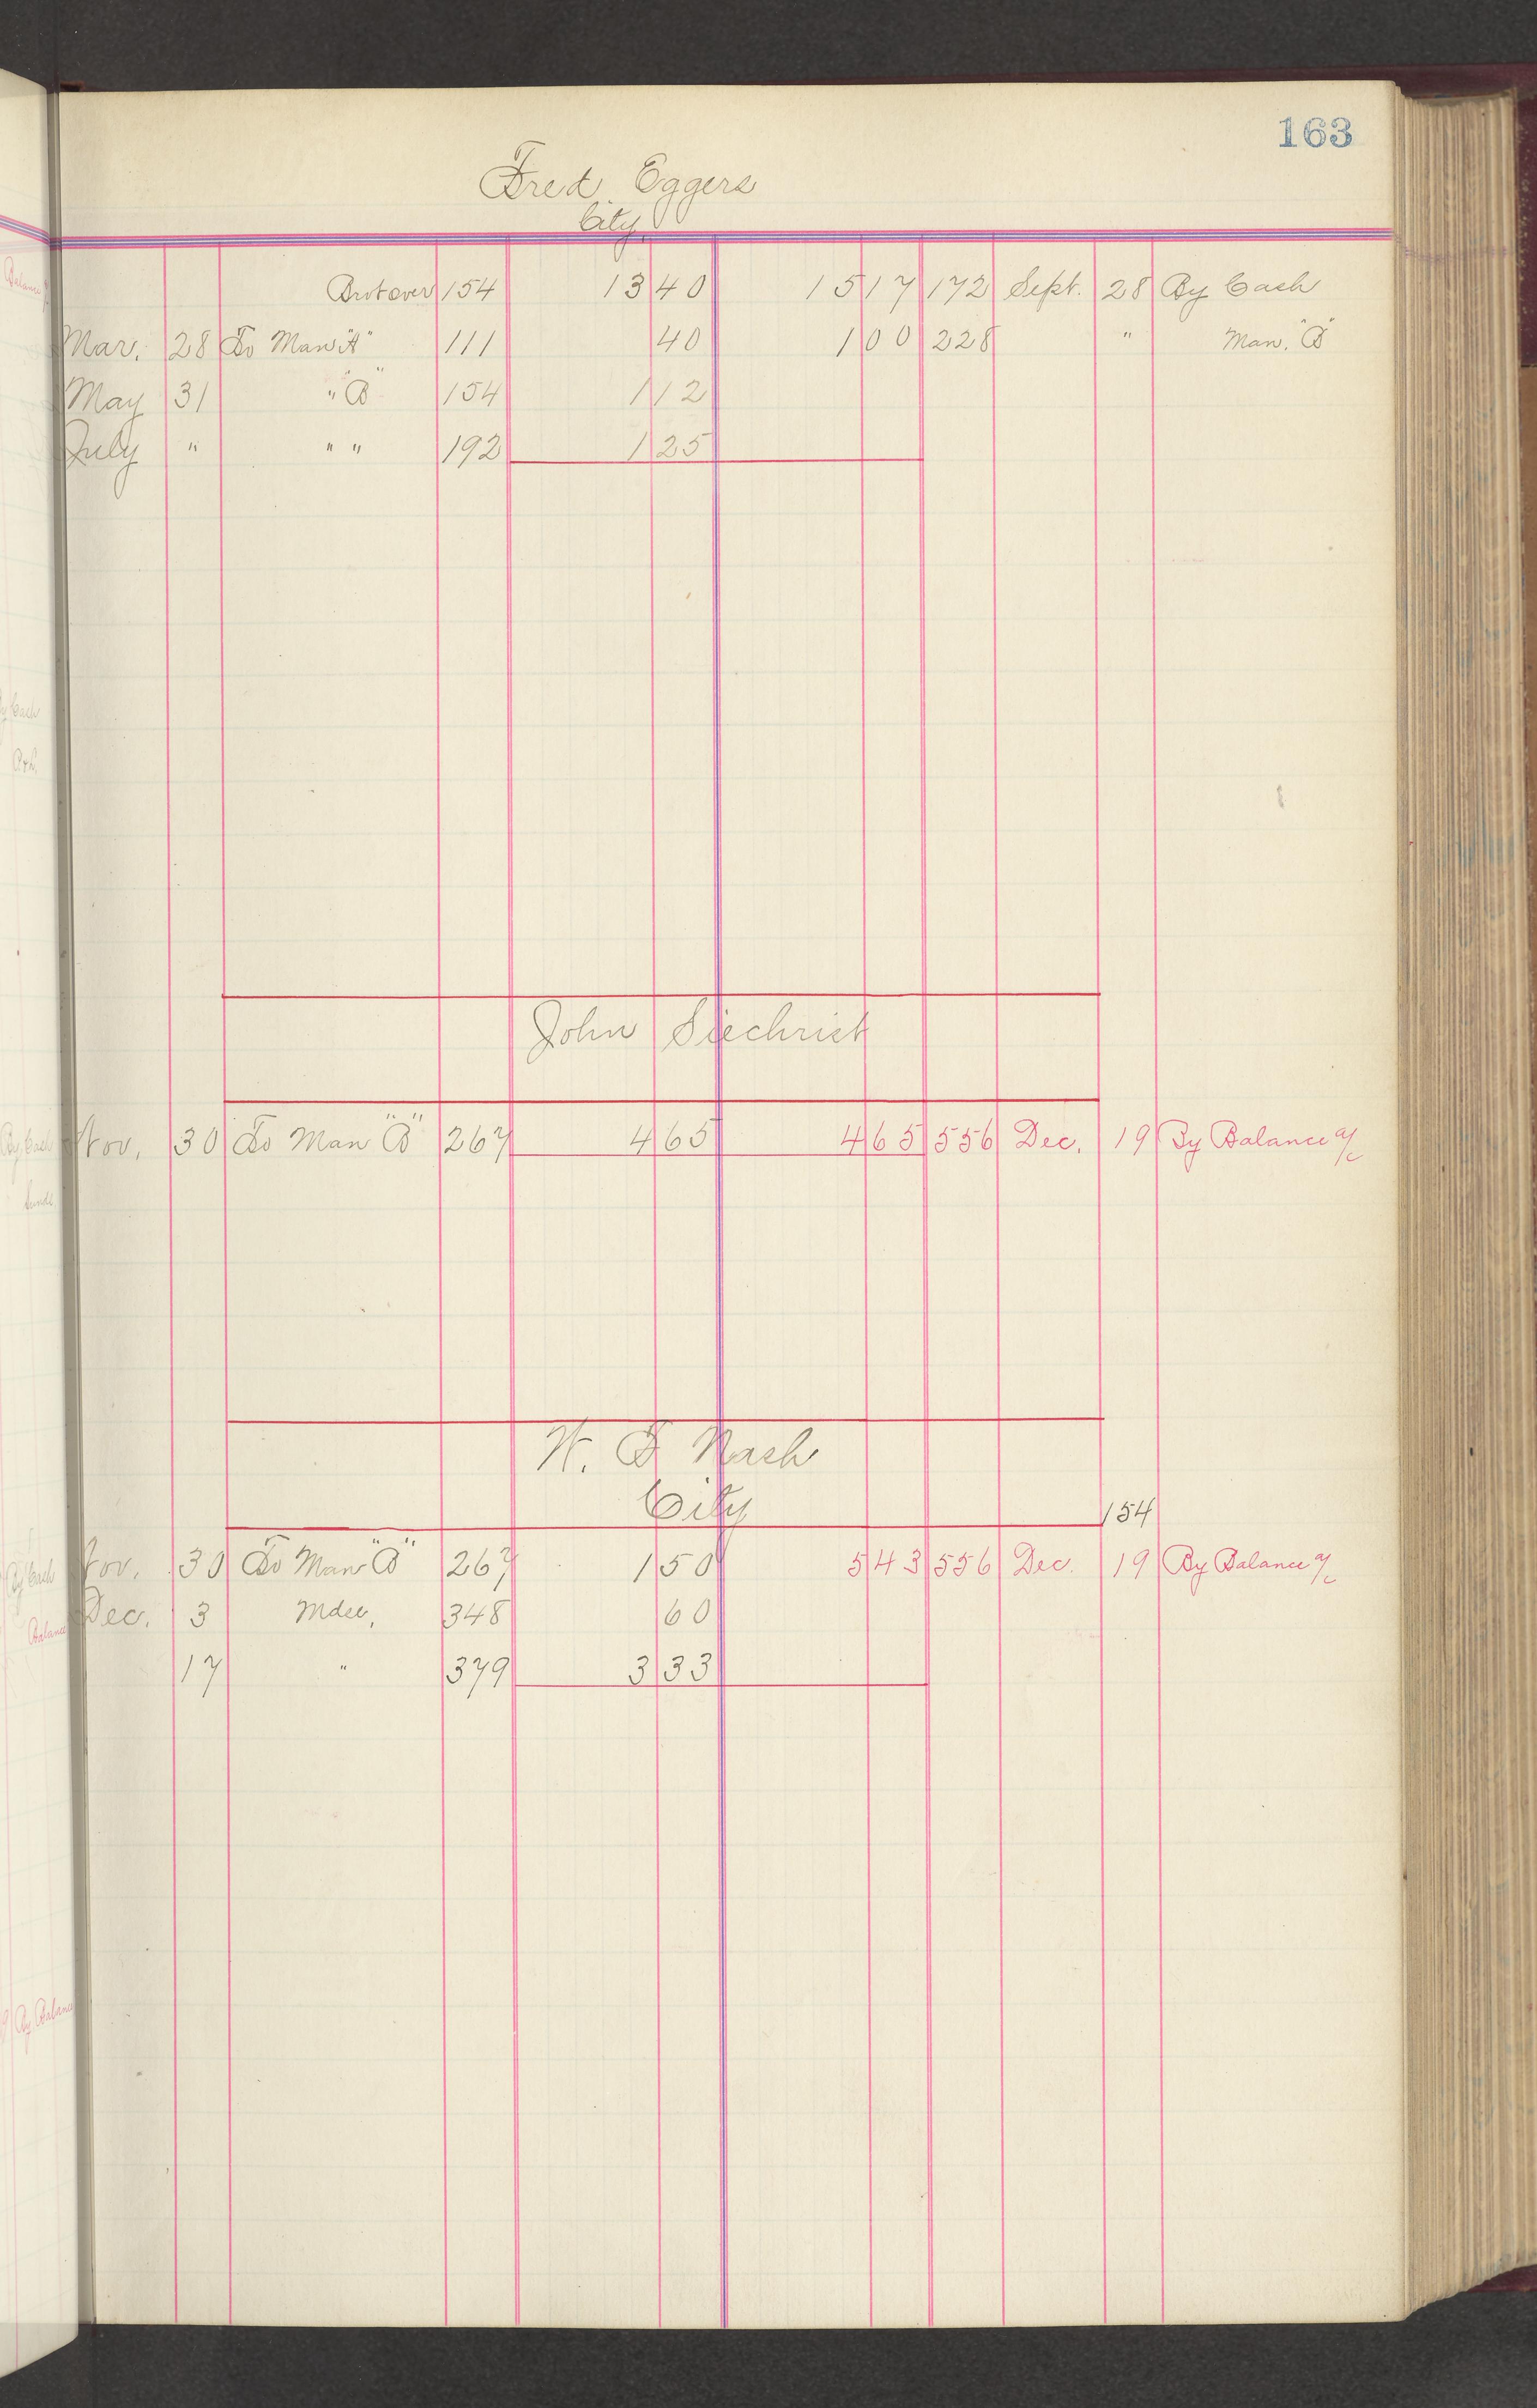 163
Fred Eggers
City
Brot over 154 13 40 15 17 172 Sept. 28 By Cash
Mar. 28 To Man "A" 111 40 1 00 228 " Man. "B"
May 31 " "B" 154 1 12
July " " " 192 1 25
John Siechrist
Nov. 30 To Man "B" 267 4 65 4 65 556 Dec. 19 By Balance a/c
W. F. Nash
City
154
Nov. 30 To Man "B" 267 1 50 5 43 556 Dec. 19 By Balance a/c
Dec. 3 Mdse, 348 60
17 " 379 3 33